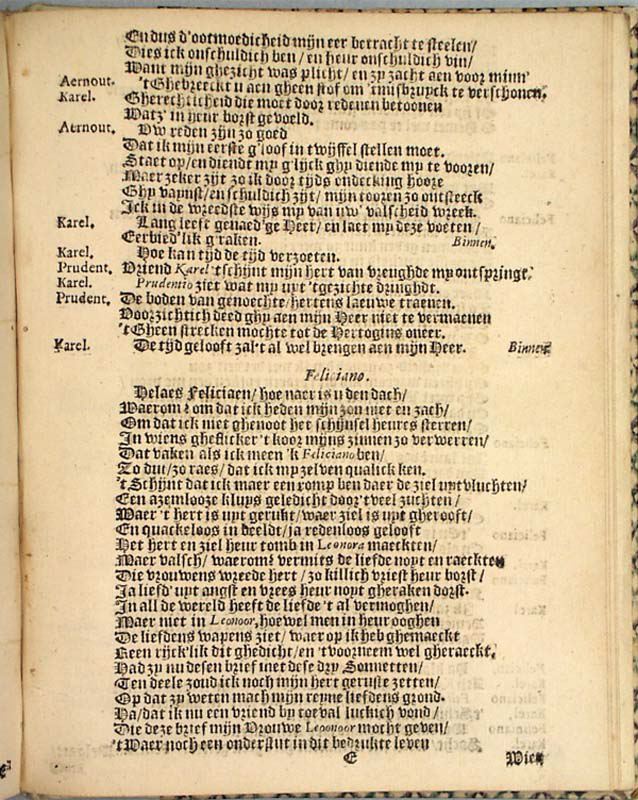 En dus d'ootmoedicheid mijn eer betracht te steelen/
Dies ick onschuldich ben/ en heur onschuldich vin/
Want mijn ghezicht was plicht/ en zy zacht aen voor minn'
Aernout. 't Ghebreeckt u aen gheen stof om 'tmisbruyck te verschonen.
Karel. Gherechticheid die moet door redenen betoonen
Watz' in heur borst gevoeld.
Aernout. Uw reden zijn zo goed
Dat ik mijn eerste g'loof in twyffel stellen moet.
Staet op/ en diendt my g'lijck ghy diende my te vooren/
Maer zeker zijt zo ik door tijds ondecking hoore
Ghy vaynst/ en schuldich zijt/ mijn tooren zo ontsteeck
Ick in de wreedste wijs my van uw' valscheid wreek.
Karel. Lang leeft genaed'ge Heer/ en laet my deze voeten/
Eerbied'lik g'raken. Binnen.
Karel. Hoe kan tyd de tyd verzoeten.
Prudent. Vriend Karel 't schijnt mijn hert van vreughde my ontspringt.
Karel. Prudentio ziet wat my uyt 't gezichte dringhdt.
Prudent. De boden van genoechte/ hertens laeuwe traenen.
Voorzichtich deed ghy aen mijn Heer niet te vermaenen
't Gheen strecken mochte tot de Hertogins oneer.
Karel. De tyd gelooft zal 't al wel brengen aen mijn Heer. Binnen
Feliciano.
Helaes Feliciaen/ hoe naer is u den dach/
Waerom? om dat ick heden mijn zon niet en zach/
Om dat ick niet ghenoot her schijnsel heures sterren/
In wiens gheflicker 't koor mijns zinnen zo verwerren/
Dat vaken als ick meen 'k Feliciano ben/
Zo dut/ zo raes/ dat ick my zelven qualick ken.
't Schijnt dat ick maer een romp ben daer de ziel uyt vluchten/
Een azemlooze kluys geledicht door 't veel zuchten/
Waer 't hert is uyt gerukt/ waer ziel is uyt gherooft/
En quackeloos in beeldt/ ja redenloos gelooft
Het hert en ziel heur tomb in Leonora maeckten/
Maer valsch/ waerom? vermits de liefde noyt en raeckten
Die vrouwens wreede hert/ zo killich vriest heur borst/
Ja liefd' uyt angst en vrees heur noyt gheraken dorst.
In all de wereld heeft de liefde 't al vermoghen/
Maer niet in Leonoor, hoewel men in heur ooghen
De liefdens wapens ziet/ waer op ik heb ghemaeckt
Keen rijck'lik dit ghedicht/ en 't voorneem wel gheraeckt.
Had zy nu desen brief met dese dry Sonnetten/
Ten deele zoud ick noch mijn hert geruste zetten/
Op dat zy weten mach mijn reyne liefdens grond.
Ha/ dat ik nu een vriend by toeval luckich vond/
Die deze brief mijn Vrouwe Leoonoor mocht geven/
't Waer noch een onderstut in dit bedrukte leven
E Wien